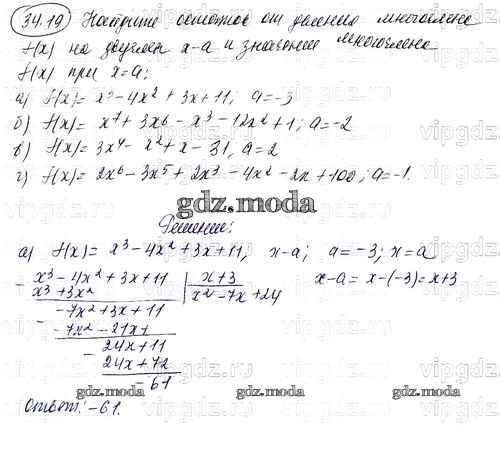 34.19 Найдите остаток от деления многочлена
f(x) на двучлен x-a и значение многочлена
f(x) при x=a:
а) f(x)= x³-4x²+3x+11; a=-3
б) f(x)= x⁷+3x⁶-x³-12x²+1; a=-2
в) f(x)= 3x⁴-x²+x-31, a=2
г) f(x)= 2x⁶-3x⁵+2x³-4x²-2x+100; a=-1.
gdz.moda
Решение:
а) f(x)= x³-4x²+3x+11, x-a; a=-3; x=a
- x³-4x²+3x+11 | x+3 x-a= x-(-3)=x+3
x³+3x² x²-7x+24
- -7x²+3x+11
-7x²-21x
- 24x+11
24x+72
-61
gdz.moda gdz.moda gdz.moda
Ответ: -61.